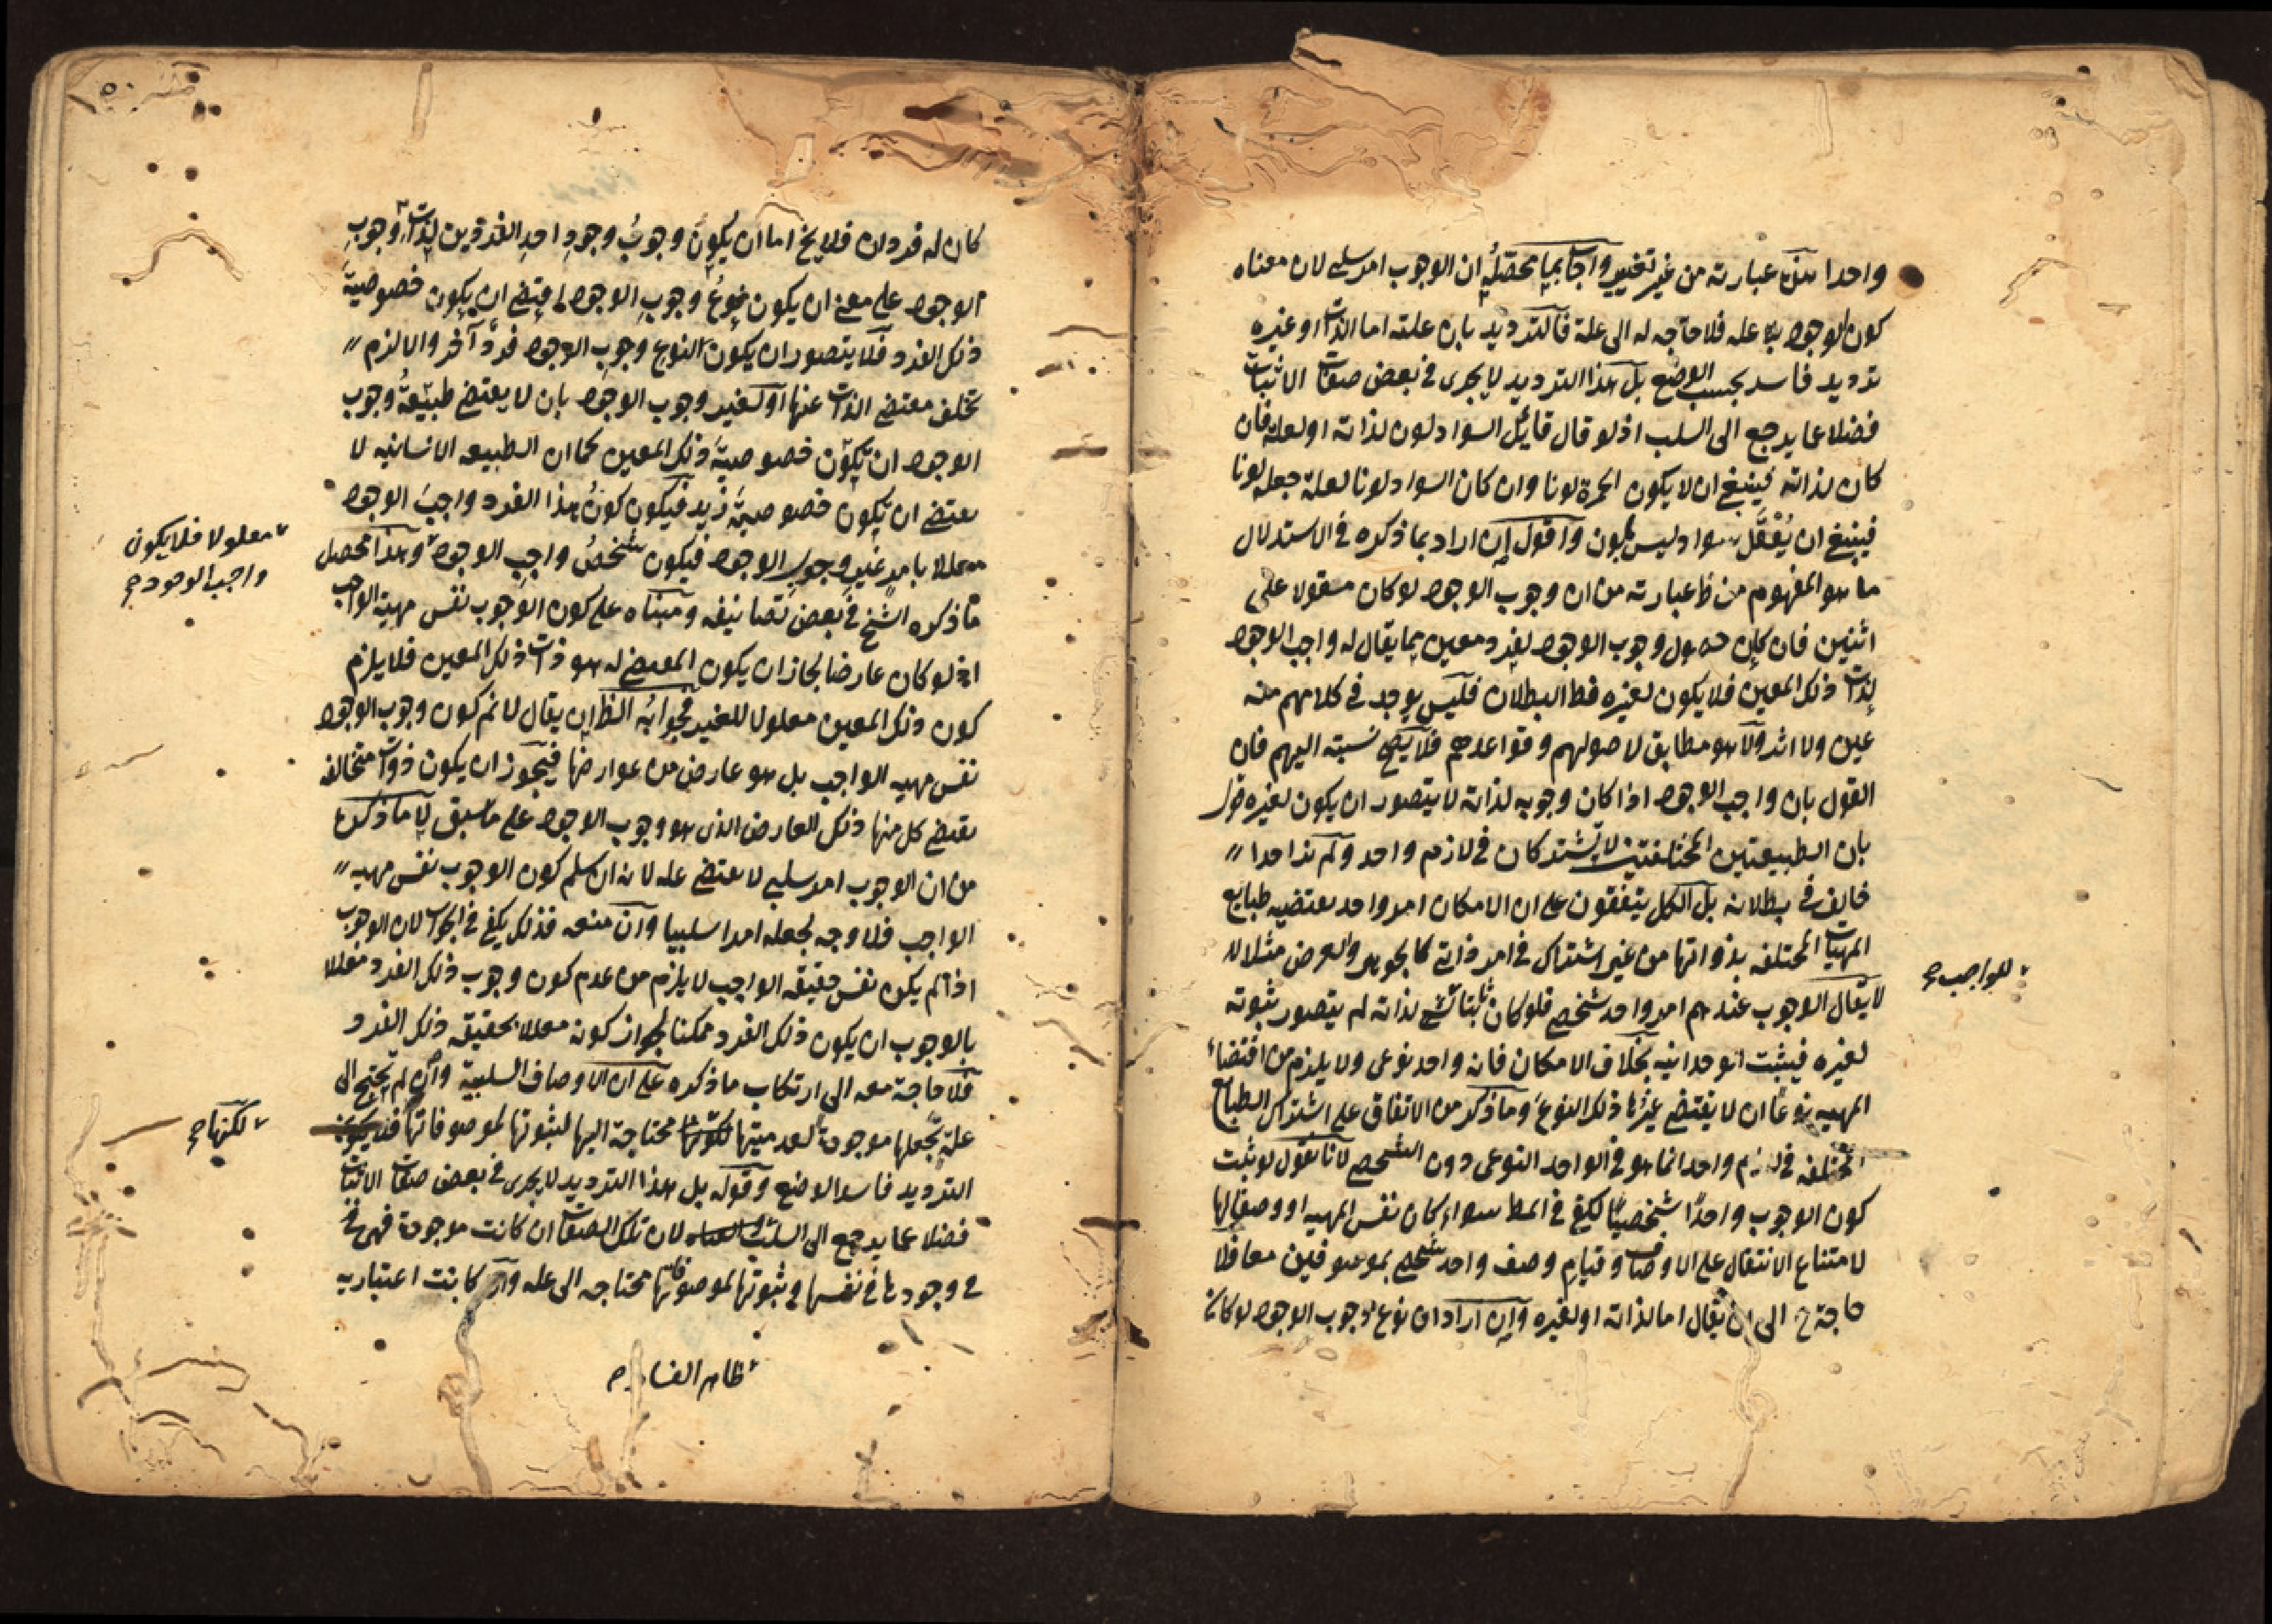 واحدا هذه عبارته من غير تغيير واجاب بما محصله ان الوجوب امر سلبي لان معناه
كون الوجود بلا عله فلا حاجه له الى علة فالترديد بان علته اما الذات او غيره
ترديد فاسد بحسب الوضع بل هذا الترديد لا يجرى فى بعض صفات الاثبات
فضلا عما يرجع الى السلب اذ لو قال قائل السواد لون لذاته او لعلة فان
كان لذاته فينبغى ان لا يكون الحمرة لونا وان كان السواد لونا لعلة جعله لونا
فينبغى ان يعقل سواد ليس بلون واقول ان اراد بما ذكره فى الاستدلال
ما هو المفهوم من ظ عبارته من ان وجوب الوجود لو كان مقولا على
اثنين فان كان حصول وجوب الوجود لفرد معين مما يقال له واجب الوجود
لذات ذلك المعين فلا يكون لغيره فظ البطلان فليس يوجد فى كلامهم منه
عين ولا اثر ولا هو مطابق لاصولهم وقواعدهم فلا يصح نسبته اليهم فان
القول بان واجب الوجود اذا كان وجوبه لذاته لا يتصور ان يكون لغيره قول
بان الطبيعتين المختلفتين لا تشتركان فى لازم واحد ولم نر احدا
خالف فى بطلانه بل الكل يتفقون على ان الامكان امر واحد يقتضيه طبايع
المهيات المختلفه بذواتها من غير اشتراك فى امر ذاتى كالجوهر والعرض مثلا لا
لا يقال الوجوب عندهم امر واحد شخصى فلو كان ثابتا لشئ لذاته لم يتصور ثبوته
للواجب صح
لغيره فيثبت الوحدانيه بخلاف الامكان فانه واحد نوعى ولا يلزم من اقتضاء
المهيه نوعا ان لا يقتضى غيرها ذلك النوع وما ذكر من الاتفاق على اشتراك الطبايع
المختلفه فى لازم واحد انما هو فى الواحد النوعى دون الشخصى لانا نقول لو ثبت
كون الوجوب واحدا شخصيا لكفى فى المط سواء كان نفس المهيه او وصفا لها
لامتناع الانتقال على الاوصاف وقيام وصف واحد شخصى بموصوفين معا فلا
حاجة ح الى ان يقال اما لذاته او لغيره وان اراد ان نوع وجوب الوجود لو كان
كان له فردان فلا يخ اما ان يكون وجوب وجود احد الفردين لذات وجوب
الوجود على معنى ان يكون نوع وجوب الوجود يقتضى ان يكون خصوصية
ذلك الفرد فلا يتصور ان يكون لنوع وجوب الوجود فرد آخر والا لزم
تخلف مقتضى الذات عنها او لغير وجوب الوجود بان لا يقتضى طبيعة وجوب
الوجود ان يكون خصوصية ذلك المعين كما ان الطبيعه الانسانيه لا
يقتضى ان يكون خصوصية زيد فيكون كون هذا الفرد واجب الوجود
معللا بامر غير وجوب الوجود فيكون شخص واجب الوجود وهذا محصل
معلولا فلا يكون
واجب الوجود صح
ما ذكره الشيخ فى بعض تصانيفه ومبناه على كون الوجوب نفس مهية الواجب
اذ لو كان عارضا لجاز ان يكون المقتضى له هو ذات ذلك المعين فلا يلزم
كون ذلك المعين معلولا للغير فجوابه الظ ان يقال لا نم كون وجوب الوجود
نفس مهيه الواجب بل هو عارض من عوارضها فيجوز ان يكون ذوات متخالفه
يقتضى كل منها ذلك العارض الذى هو وجوب الوجود على ما سبق لا ما ذكره
من ان الوجوب امر سلبى لا يقتضى عله لانه ان سلم كون الوجوب نفس مهيه
الواجب فلا وجه لجعله امرا سلبيا وان منعه فذلك يكفى فى الجواب لان الوجوب
اذا لم يكن نفس حقيقه الواجب لا يلزم من عدم كون وجوب ذلك الفرد معللا
بالوجوب ان يكون ذلك الفرد ممكنا لجواز كونه معللا بحقيقه ذلك الفرد
فلا حاجة معه الى ارتكاب ما ذكره على ان الاوصاف السلبية وان لم تحتج الى
علة تجعلها موجودة لعدميتها محتاجة اليها لثبوتها لموصوفاتها فلا يكون
لكنها صح
الترديد فاسد الوضع وقوله بل هذا الترديد لا يجرى فى بعض صفات الاثبات
فضلا عما يرجع الى السلب لان تلك الصفات ان كانت موجودة فهى
فى وجودها فى نفسها وفى ثبوتها لموصوفاتها محتاجه الى عله وان كانت اعتباريه
ظاهر الفساد صح